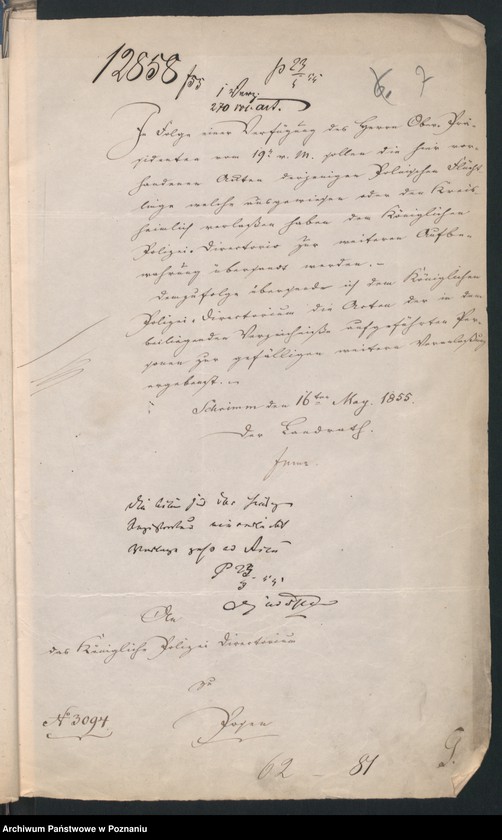 12858/55
p 23/5 55
6. 7
1 Verz.
270 vol. act.
In Folge einer Verfügung des Herrn Ober-Prä-
sidenten vom 19t v. M. sollen die hier vor-
handenen Akten derjenigen Polnischen Flücht
linge welche ausgewiesen oder den Kreis
heimlich verlassen haben dem Königlichen
Polizei-Directorio zur weiteren Aufbe-
wahrung übersandt werden.-
Demzufolge übersende ich dem Königlichen
Polizei-Directorium die Acten der in dem
beiliegenden Verzeichniße aufgeführten Per-
sonen zur gefälligen weitern Veranlassung
ergebenst.-
Schrimm den 16ten May. 1855.
Der Landrath.
Die Akten sind der
Registratur
Vorlage ad Acta
P 23/5 55
An
das Königliche Polizei Directorium
zu
No 3094
Posen
62 - 81
G.
Archiwum Państwowe w Poznaniu